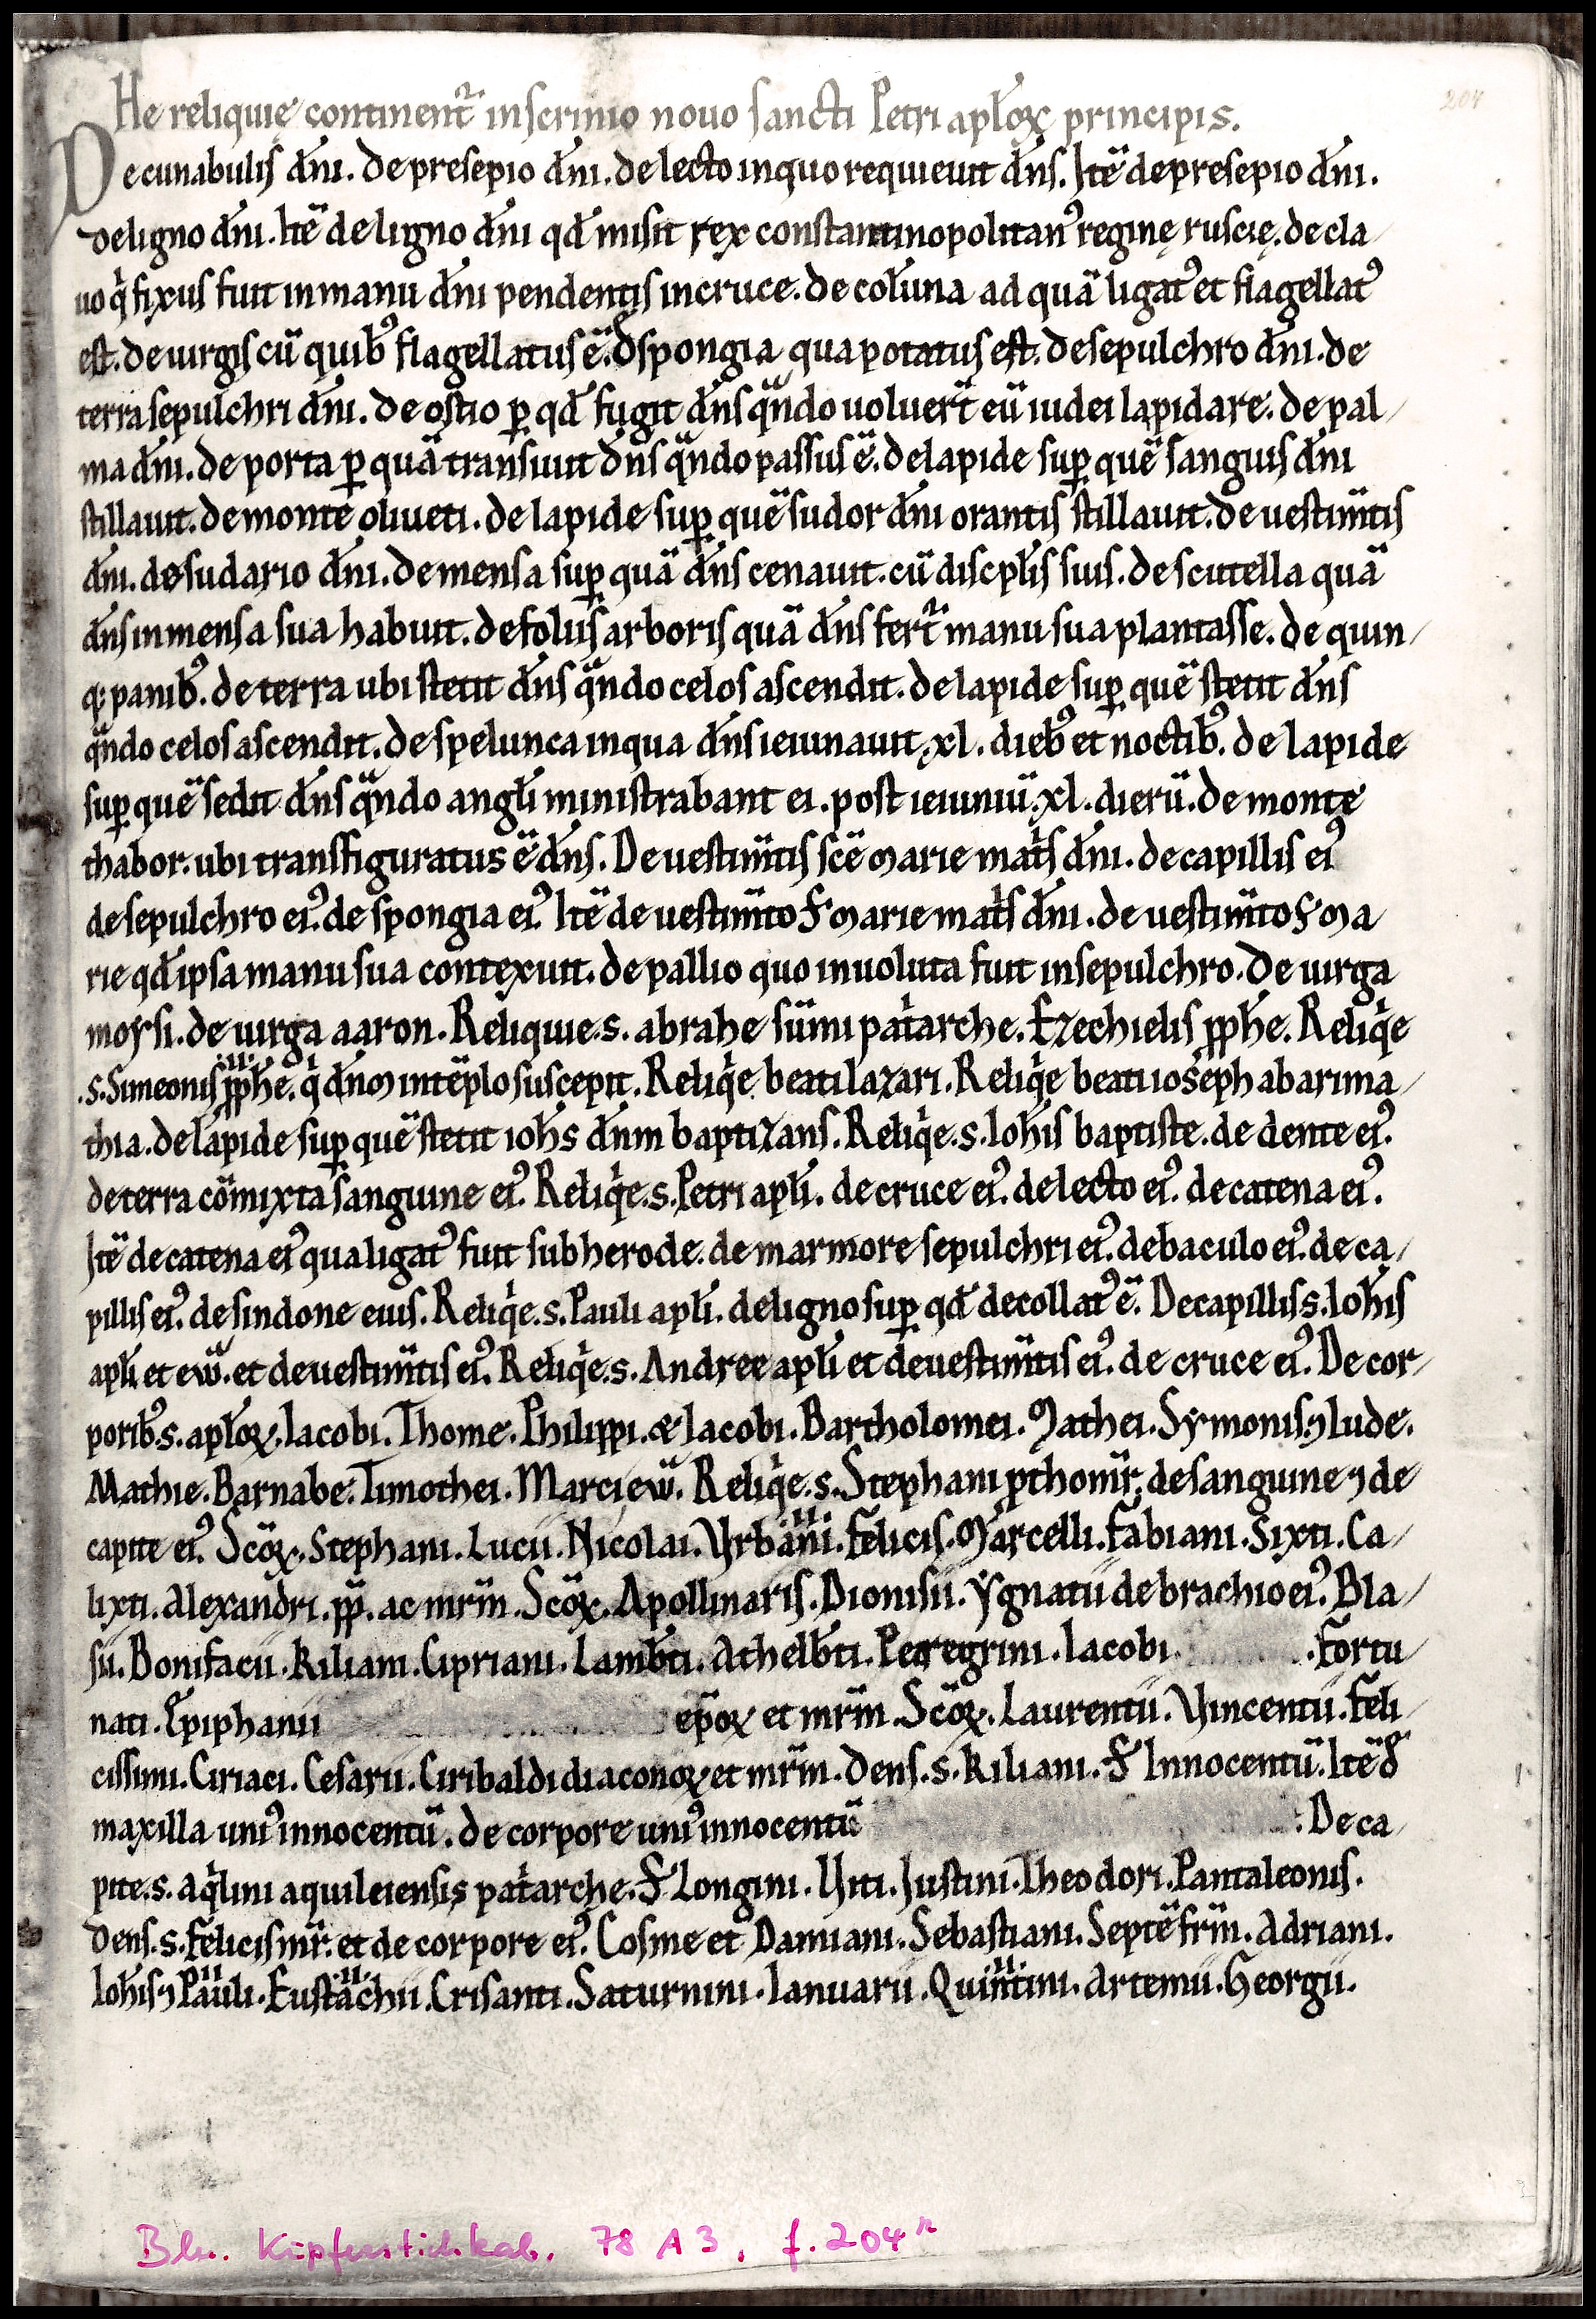 204
He reliquię continent᷑ in scrinio nouo sancti Petri apl̄oꝝ principis.
De cunabulis dn̄i. De presepio dn̄i. de lecto in quo requieuit dn̄s. Itē de presepio dn̄i.
De ligno dn̄i. Itē de ligno dn̄i qđ misit rex constantinopolitanꝰ reginę ruscię. de cla/
uo q̇ fixus fuit in manu dn̄i pendentis in cruce. de colūna ad quā ligatꝰ et flagellatꝰ
est. de uirgis cū quibꝰ flagellatus ē. de spongia qua potatus est. de sepulchro dn̄i. de
terra sepulchri dn̄i. de ostio ꝑ qđ fugit dn̄s qn̄do uoluer̄t eū iudei lapidare. de pal/
ma dn̄i. de porta ꝑ quā transiuit dn̄s qn̄do passus ē. de lapide suꝑ quē sanguis dn̄i
stillauit. de monte oliueti. de lapide suꝑ quē sudor dn̄i orantis stillauit. de uestim̄tis
dn̄i. de sudario dn̄i. de mensa suꝑ quā dn̄s cenauit. cū discipl̄is suis. de scutella quā
dn̄s in mensa sua habuit. de foliis arboris quā dn̄s fert᷑ manu sua plantasse. de quin/
q; panibꝰ. de terra ubi stetit dn̄s qn̄do celos ascendit. de lapide suꝑ quē stetit dn̄s
qn̄do celos ascendit. de spelunca in qua dn̄s ieiunauit .xl. diebꝰ et noctibꝰ. de lapide
suꝑ quē sedit dn̄s qn̄do angl̄i ministrabant ei. post ieiuniū .xl. dierū. de monte
thabor. ubi transfiguratus ē dn̄s. De uestim̄tis scē marie mat̄s dn̄i. de capillis eiꝰ
de sepulchro eiꝰ. de spongia eiꝰ. Itē de uestim̄to .S. marie mat̄s dn̄i. de uestim̄to .S. ma
rie qđ ipsa manu sua contexuit. de pallio quo inuoluta fuit in sepulchro. De uirga
moysi. de uirga aaron. Reliquie .s. abrahe sūmi pat̄arche. Ezechielis ꝓph̄e. Reliq̇e
.s. Simeonis ꝓph̄e. q̇ dn̄m in tēplo suscepit. Reliq̇e beati lazari. Reliq̇e beati ioseph ab arima/
thia. de lapide suꝑ quē stetit ioh̄s dn̄m baptizans. Reliq̇e .s. Ioh̄is baptiste. de dente eiꝰ.
de terra cōmixta sanguine eiꝰ. Reliq̇e .s. Petri apl̄i. de cruce eiꝰ. de lecto eiꝰ. de catena eiꝰ.
Itē de catena eiꝰ qua ligatꝰ fuit sub herode. de marmore sepulchri eiꝰ. de baculo eiꝰ. de ca/
pillis eiꝰ. de sindone eius. Reliq̇e .s. Pauli apl̄i. de ligno suꝑ qđ decollatꝰ ē. De capillis s. Ioh̄is
apl̄i et ew̄. et de uestim̄tis eiꝰ. Reliq̇e .s. Andree apl̄i et de uestim̄tis eiꝰ. de cruce eiꝰ. De cor/
poribꝰ s. apl̄oꝝ. Iacobi. Thome. Philippi. & Iacobi. Bartholomei. Mathei. Symonis ⁊ Iude.
Mathie. Barnabe. Timothei. Marci ew̄. Reliq̇e .s. Stephani ꝓthom̄r. de sanguine ⁊ de
capite eiꝰ. Scōꝝ. Stephani. Lucii. Nicolai. Vrbani. Felicis. Marcelli. Fabiani. Sixti. Ca/
lixti. Alexandri. pp̄. ac mr̄m. Scōꝝ. Apollinaris. Dionisii. Ygnatii de brachio eiꝰ. Bla/
sii. Bonifacii. Kiliani. Cipriani. Lamb̄ti. Athelb̄ti. Peregrini. Iacobi. .Fortu/
nati. Epiphanii ep̄oꝝ et mr̄m. Scōꝝ. Laurentii. Vincentii. Feli/
cissimi. Ciriaci. Cesarii. Ciribaldi diaconoꝝ et mr̄m. Dens .s. Kiliani. S. Innocentū. Itē de
maxilla uniꝰ innocentū. de corpore uniꝰ innocentū :De ca/
pite .s. aq̇lini aquileiensis pat̄arche. S. Longini. Viti. Iustini. Theodori. Pantaleonis.
Dens .s. Felicis mr̄. et de corpore eiꝰ. Cosme et Damiani. Sebastiani. Septē fr̄m. Adriani.
Ioh̄is ⁊ Pauli. Eustachii. Crisanti. Saturnini. Ianuarii. Quintini. Artemii. Georgii.
Bln. Kupferstichkab. 78 A 3, f. 204r